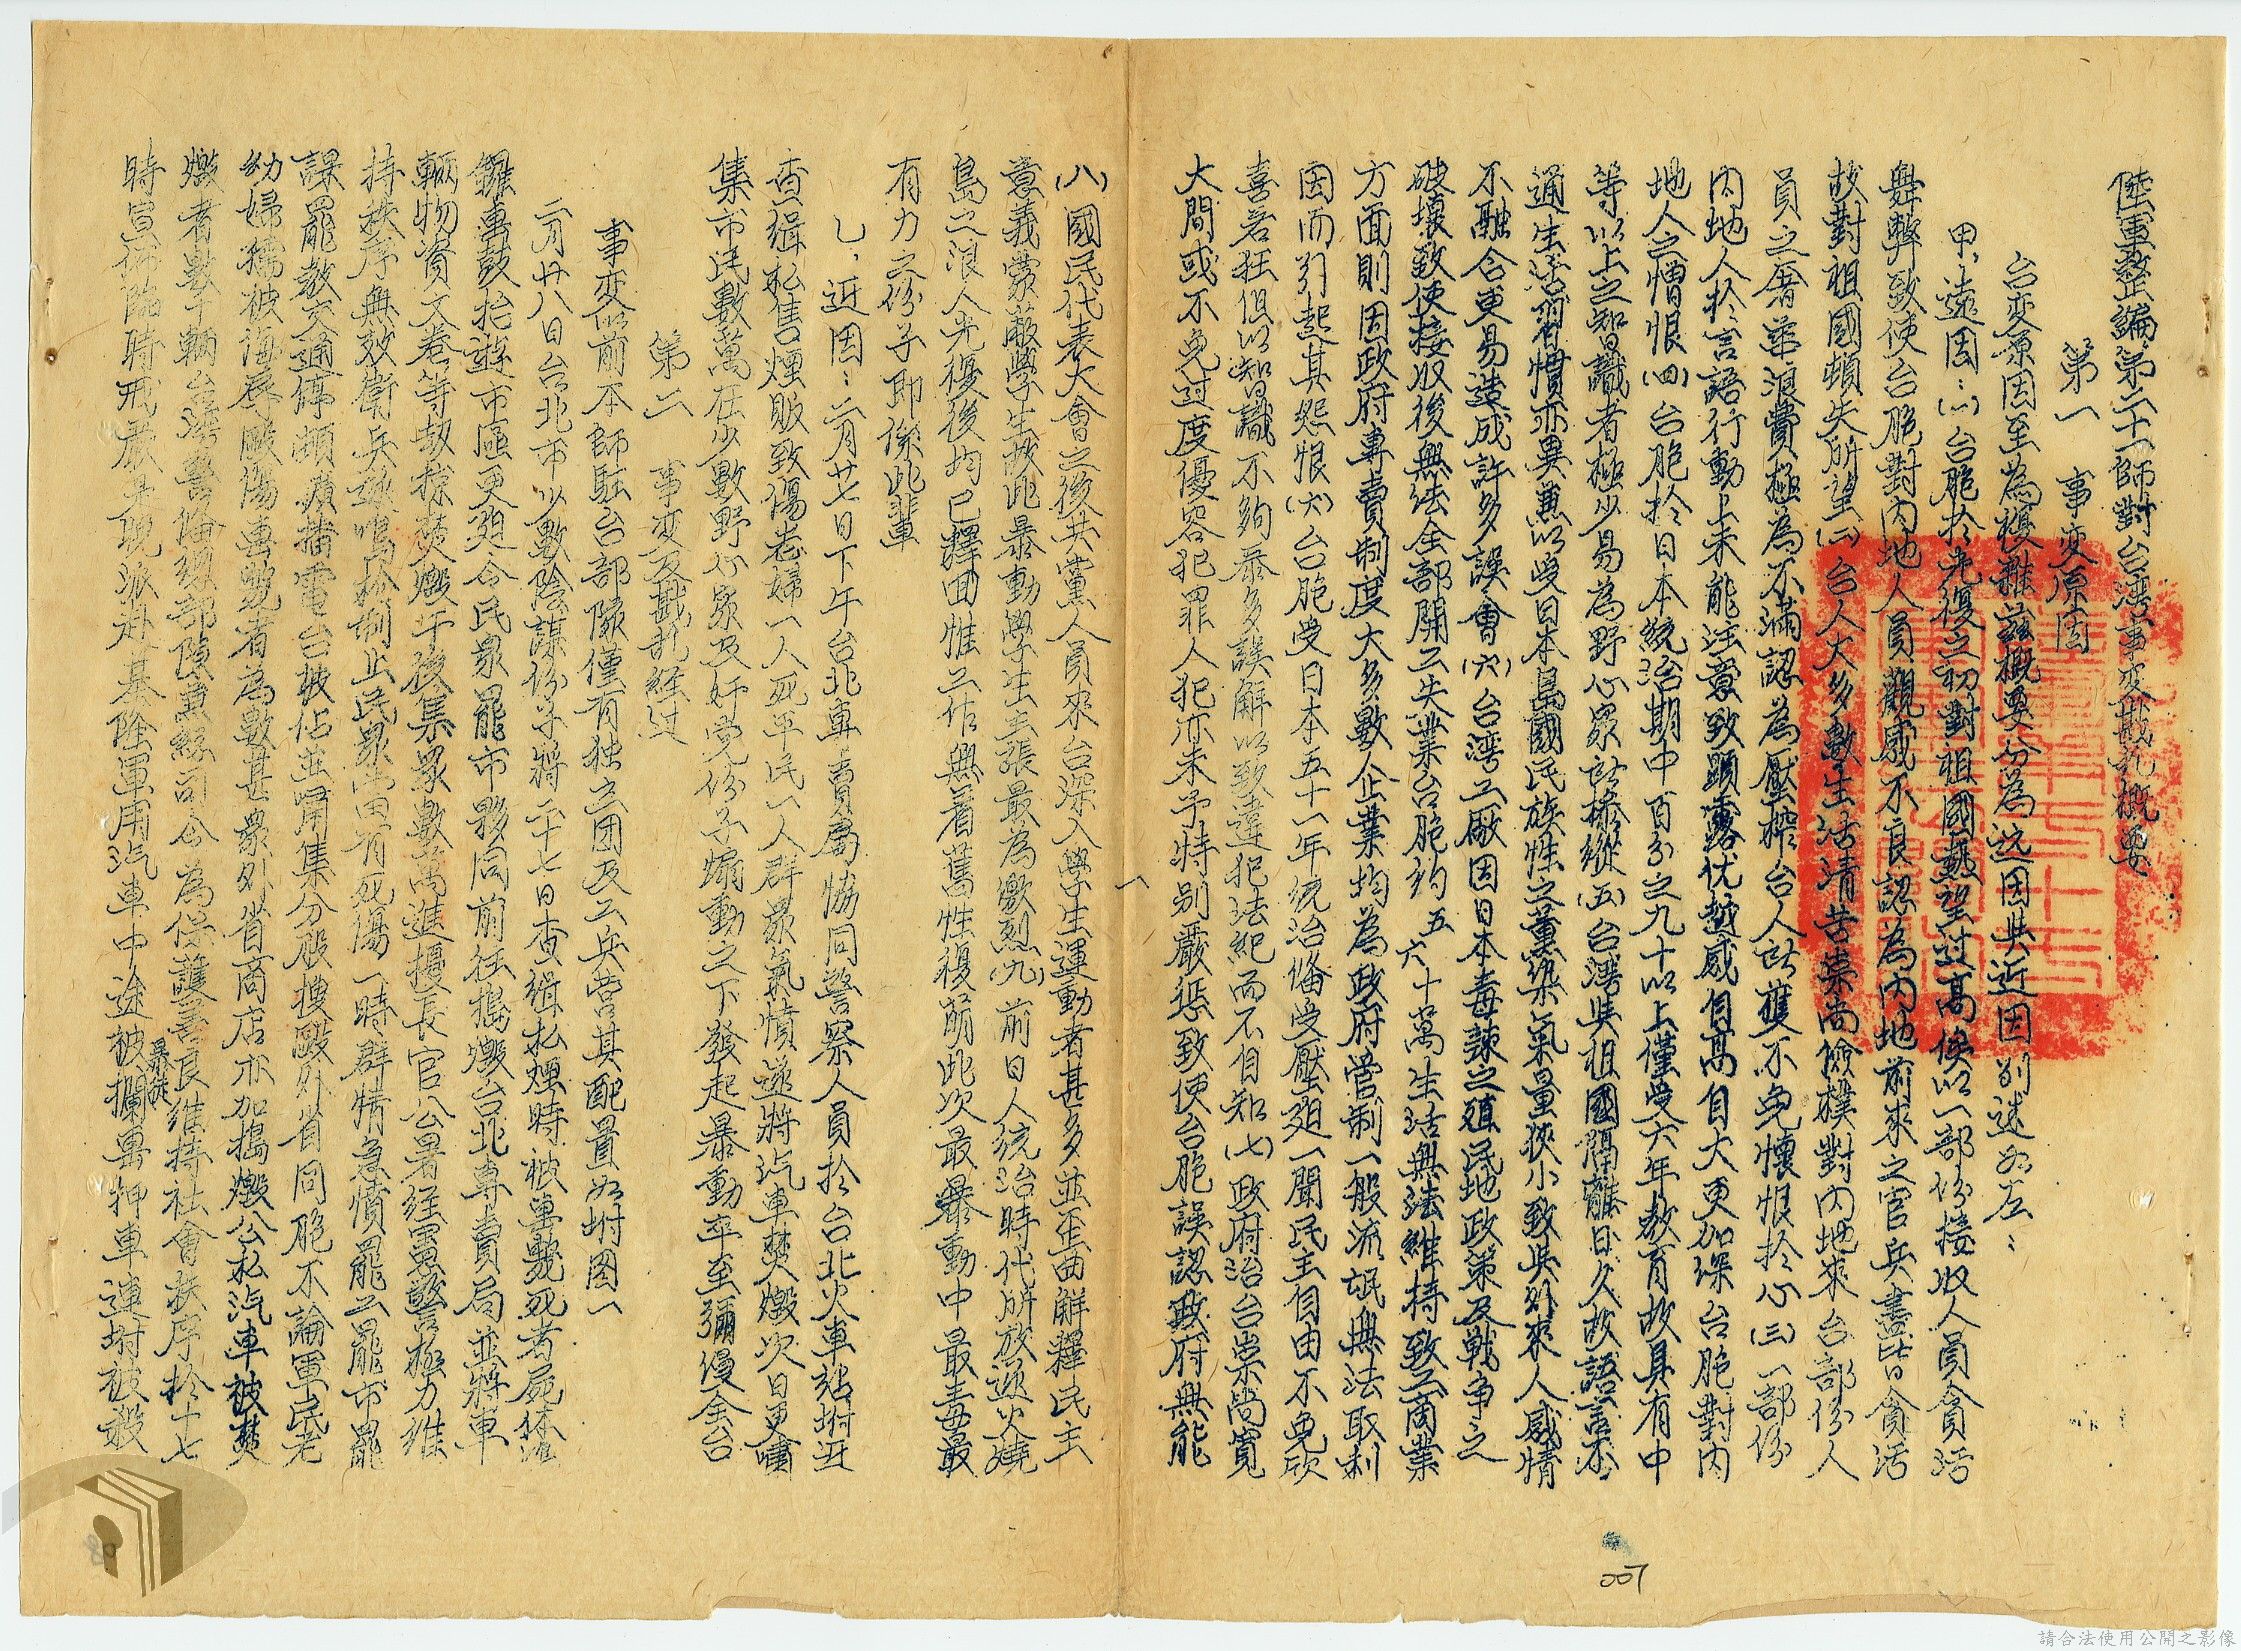 陸軍整編第二十一師對台灣事変戡乱概要
第一　事変原因
台変原因至為複雜茲概要分為远因與近因別述如左：
甲、遠因：(一)台胞扵光復之初對祖國熱望过高俟以一部份接收人員貪活
舞弊致使台胞對內地人員觀感不良認為內地前來之官兵盡皆貪活
故對祖國頓失所望(二)台人大多數生活清苦崇尚儉樸對內地來台部份人
員之奢華浪費極為不滿認為壓榨台人所獲不免懷恨扵心(三)一部份
內地人扵言語行動上未能注意致顕露优越感自高自大更加深台胞對內
地人之憎恨(四)台胞扵日本統治期中百分之九十以上僅受六年教育故具有中
等以上之知識者極少易為野心家所操縱(五)台灣與祖國隔離日久故語言不
通生活習慣亦異兼以受日本島國民族性之薰染氣量狹小致與外來人感情
不融合更易造成許多誤會(六)台灣工廠因日本毒辣之殖民地政策及戦爭之
破壞致使接收後無法全部開工失業台胞約五六十萬生活無法維持致工商業
方面則因政府專賣制度大多數企業均為政府管制一般流氓無法取利
因而引起其怨恨(六)台胞受日本五十一年統治俻受壓廹一聞民主自由不免欣
喜若狂俱以知識不夠恭多誤解以致違犯法紀而不自知(七)政府治台崇尚寬
大間或不免过度優容犯罪人犯亦未予特别嚴惩致使台胞誤認政府無能
一
(八)國民代表大會之後共黨人員來台深入學生運動者甚多並歪曲解釋民主
意義蒙蔽學生故此暴動學生主張最為激烈(九)前日人統治時代所放逐火燒
島之浪人光復後均已釋囬惟工作無着舊性復萌此次最暴動中最毒最
有力之份子即係此輩
乙、近因：二月廿七日下午台北專賣局協同警察人員扵台北火車站坿近
查緝私售煙販致傷老婦一人死平民一人群眾氣憤遂將汽車焚燬次日更嘯
集市民數萬在少數野心家及奸党份子煽動之下發起暴動卒至彌慢全台
第二　事変及戡乱經过
事変以前本師駐台部隊僅有独立团及工兵营其配置如坿图一
二月廿八日台北市少數陰謀份子將二十七日查緝私煙時被毆斃死者屍体沿
鑼重鼓抬遊市區更廹令民眾罷市夥同前往搗燬台北專賣局並將車
輛物資文卷等刼掠焚燬于後集眾數萬進擾長官公署経憲警極力維
持秩序無效衛兵迺鳴枪制止民眾當有死傷一時群情急憤罷工罷市罷
課罷教交通停頓廣播電台被佔並嘯集分股搜毆外省同胞不論軍民老
幼婦孺被侮辱毆傷重斃者為數甚眾外省商店亦加搗燬公私汽車被焚
燬者數十輛台灣警俻總部陳兼総司令為保護善良維持社會秩序扵十七
時宣佈臨時戒嚴是晚派赴基隆軍用汽車中途被暴徒攔毆押車連坿被殺
007
08
請合法使用公開之影像